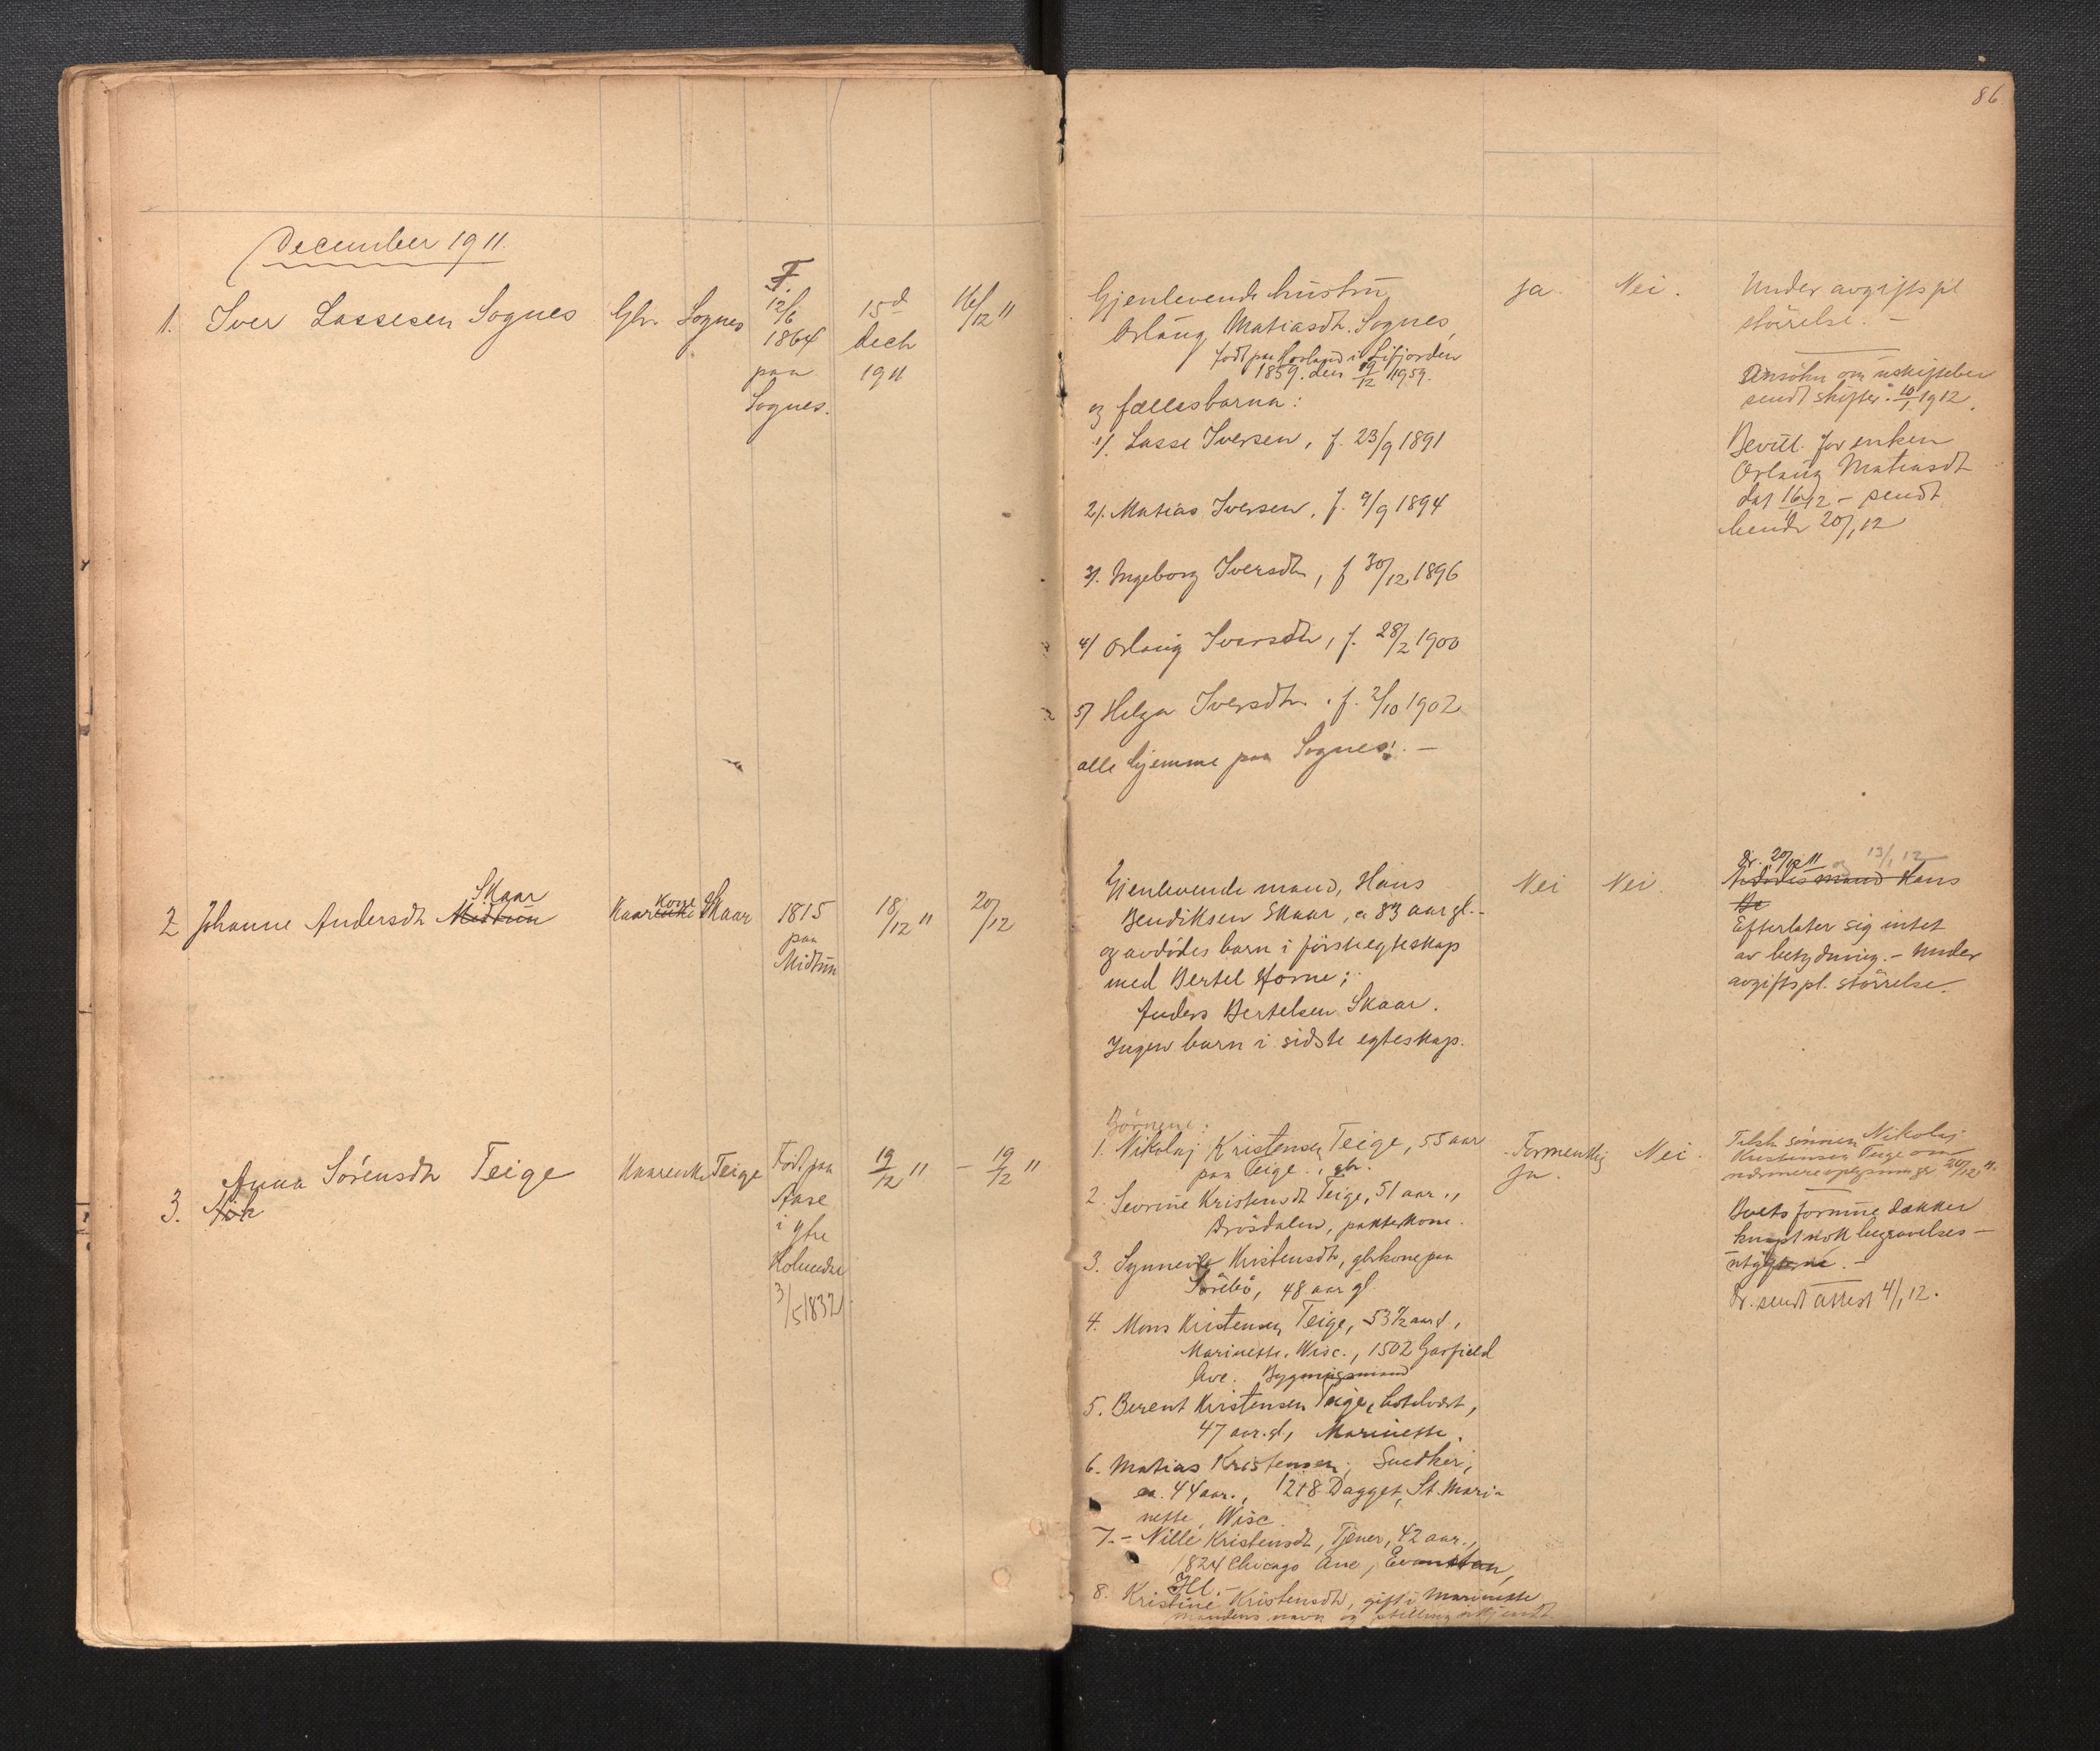 86
December 1911.
1. Iver Lassesen Sognes Gbr. Sognes
F.
12/6
1864
paa
Sognes.
15d
dech
1911
16/12 11
Gjenlevende hustru
Orlaug Matiasdtr. Sognes,
født paa i Lifjorden
1859. den 19/12 1959.
og fællesbarna:
1/. Lasse Iversen, f. 23/9 1891
2/. Matias Iversen, f. 9/9 1894
3/. Ingeborg Iversdtr, f 30/12 1896
4/ Orlaug Iversdtr, f. 28/2 1900
5/ Helga Iversdtr. f. 2/10 1902
alle hjemme paa Sognes. —
Ja. Nei.
Under avgiftspl
størrelse. —
Ansøkn om uskiftebev
sendt skifter. 10/1 1912.
Bevill. for enken
Orlaug Matiasdt
dat 16/1 12 — sendt
hende 20/1 12
2 Johanne Andersdt Midtun
Skaar
Kaarenke
Kone
Skaar
1815
paa
Midtun
18/12 11
20/12
Gjenlevende mand, Hans
Bendiksen Skaar, ca 83 aar gl. -
og avdødes barn i første egteskap
med Bertel Horne;
Anders Bertelsen Skaar.
Ingen barn i sidste egteskap.
Nei Nei.
Dr. 20/12 11 og 13/1 12
Avdødes mand Hans
Be
Efterlater sig intet
av betydning. — Under
avgiftspl. størrelse.
3. Anna Sørensdtr Teige
Kaarenke Teige
Født paa
Aase
i ytre
Holmedal
3/5 1832
19/12 11 — 19/12 11
Børnene:
1. Nikolaj Kristensen Teige, 55 aar
paa Teige., gbr.
2. Severine Kristensdt Teige, 51 aar.,
Drösdalen, pakterkone.
3. Synneve Kristensdtr, gbrkone paa
Sörebö, 48 aar gl.
4. Mons Kristensen Teige, 53 1/2 aar gl.,
Marinette. Wisc., 1502 Garfield
Ave. Bygningsmand
5. Berent Kristensen Teige, hotelvært,
47 aar. gl, Marinette.
6. Matias Kristensen; Snedker;
ca. 44 aar., 1218 Dagget, St. Mari-
nette, Wisc.
7. - Nille Kristensdt, Tjener, 42 aar.,
1824 Chicago Ave, Evanstan,
Ill. -
8. Kristine Kristensdtr, gift i Marinette
mandens navn og stilling ukjendt
Formentlig Nei.
Ja.
Tilsk. sönnen Nikolaj
Kristensen Teige om
nærmere oplysninger 20/12 11.
Boets formue dækker
knapt nok begravelses-
utgifterne. —
Dr. sendt attest 4/1 12.